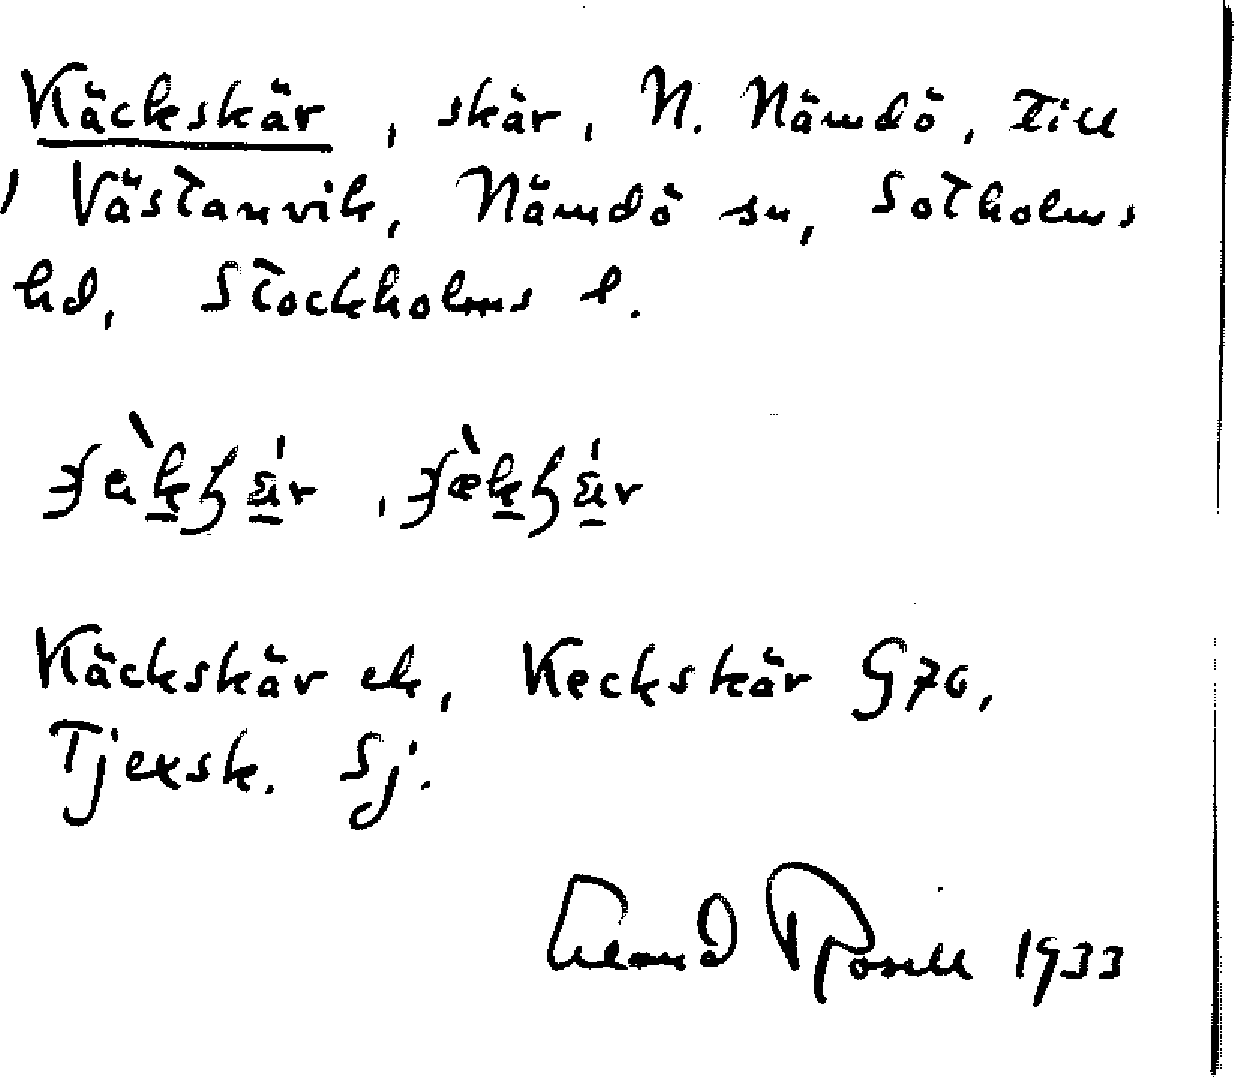 Käckskär, skär, N. Nämdö, till
Västanvik, Nämdö sn, Sotholms
hd, Stockholms l.
Käckskär ek, Keckskär G70,
Tjexsk. Sj.
Erland Rosell 1933